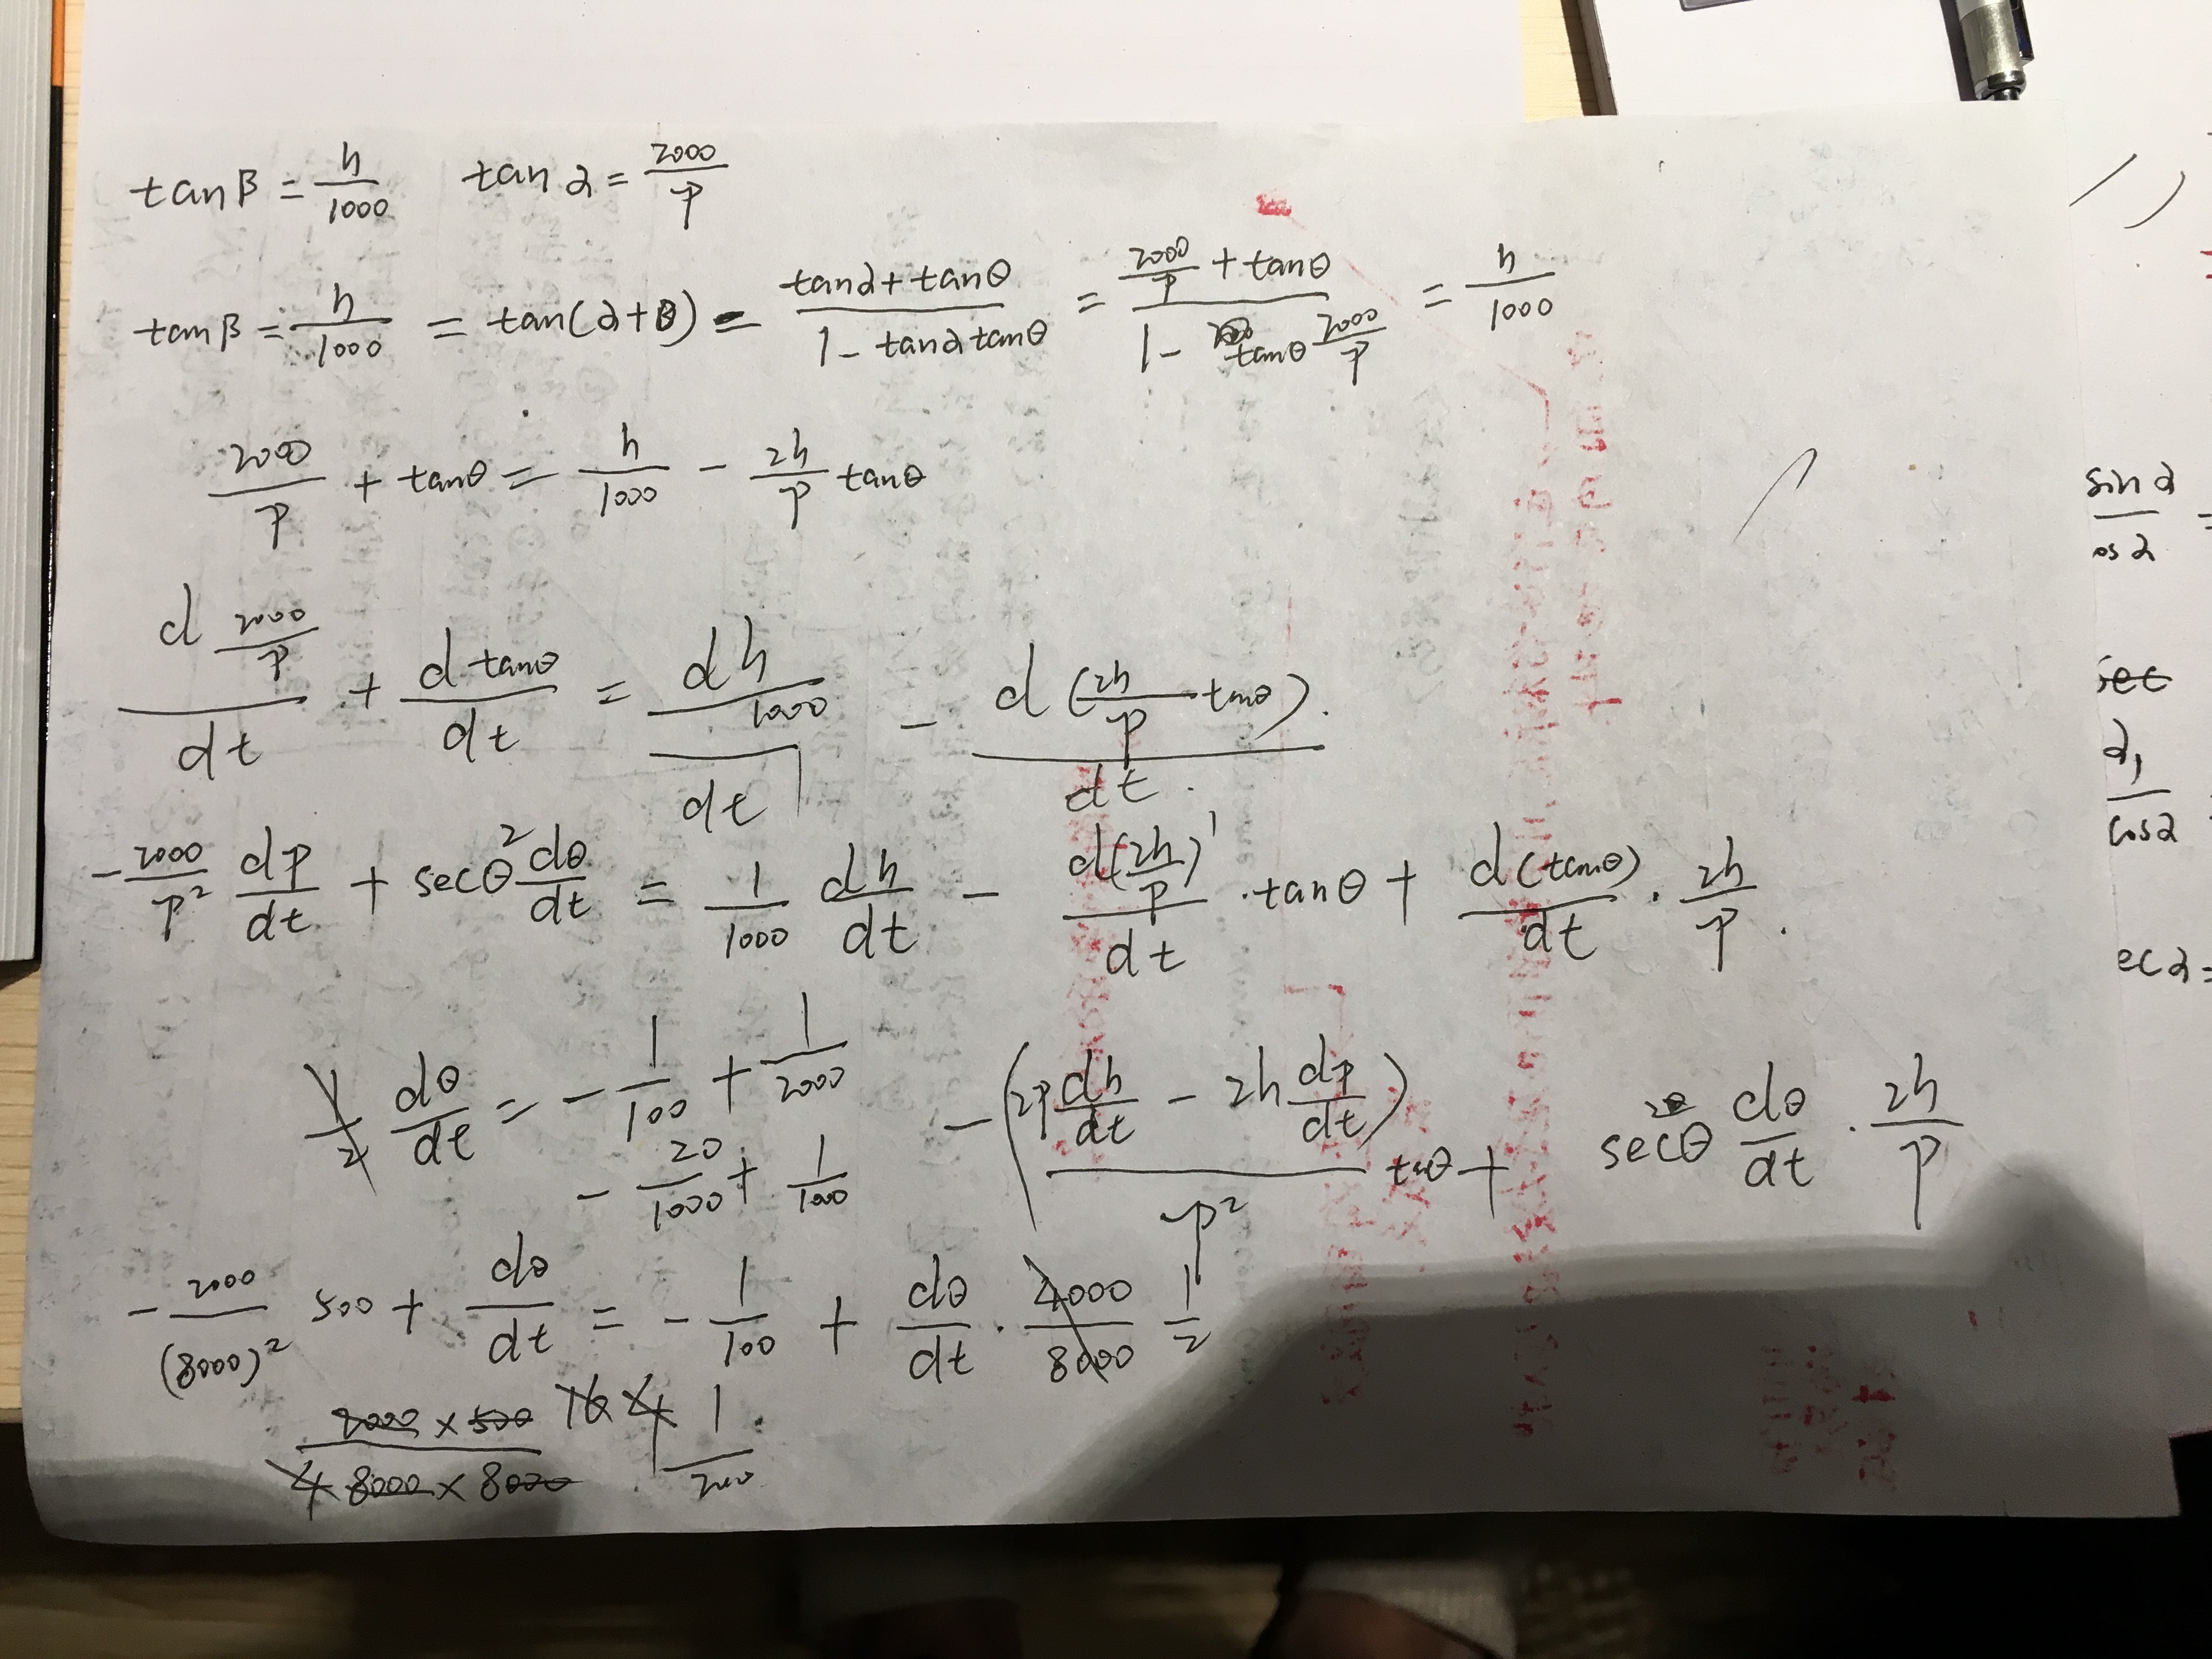 tanβ = h/1000 tan α = 2000/p
tanβ = h/1000 = tan(α+θ) = (tanα + tanθ)/(1 - tanα tanθ) = (2000/p + tanθ)/(1 - tanθ 2000/p) = h/1000
2000/p + tanθ = h/1000 - 2h/p tanθ
d 2000/p / dt + d tanθ / dt = d h/1000 / dt - d (2h/p tanθ) / dt.
- 2000/p² dp/dt + sec²θ dθ/dt = 1/1000 dh/dt - d(2h/p)' / dt · tanθ + d(tanθ)/dt · 2h/p.
1/2 dθ/dt = - 1/100 + 1/2000
- (2p dh/dt - 2h dp/dt) / p² tanθ + sec²θ dθ/dt · 2h/p
- 20/1000 + 1/1000
- 2000/(8000)² 500 + dθ/dt = - 1/100 + dθ/dt · 4000/8000 1/2
2000 × 500 / 4 8000 × 8000 16 4 1/2000
sin α
os α
sec
α1
cosα
ec α =